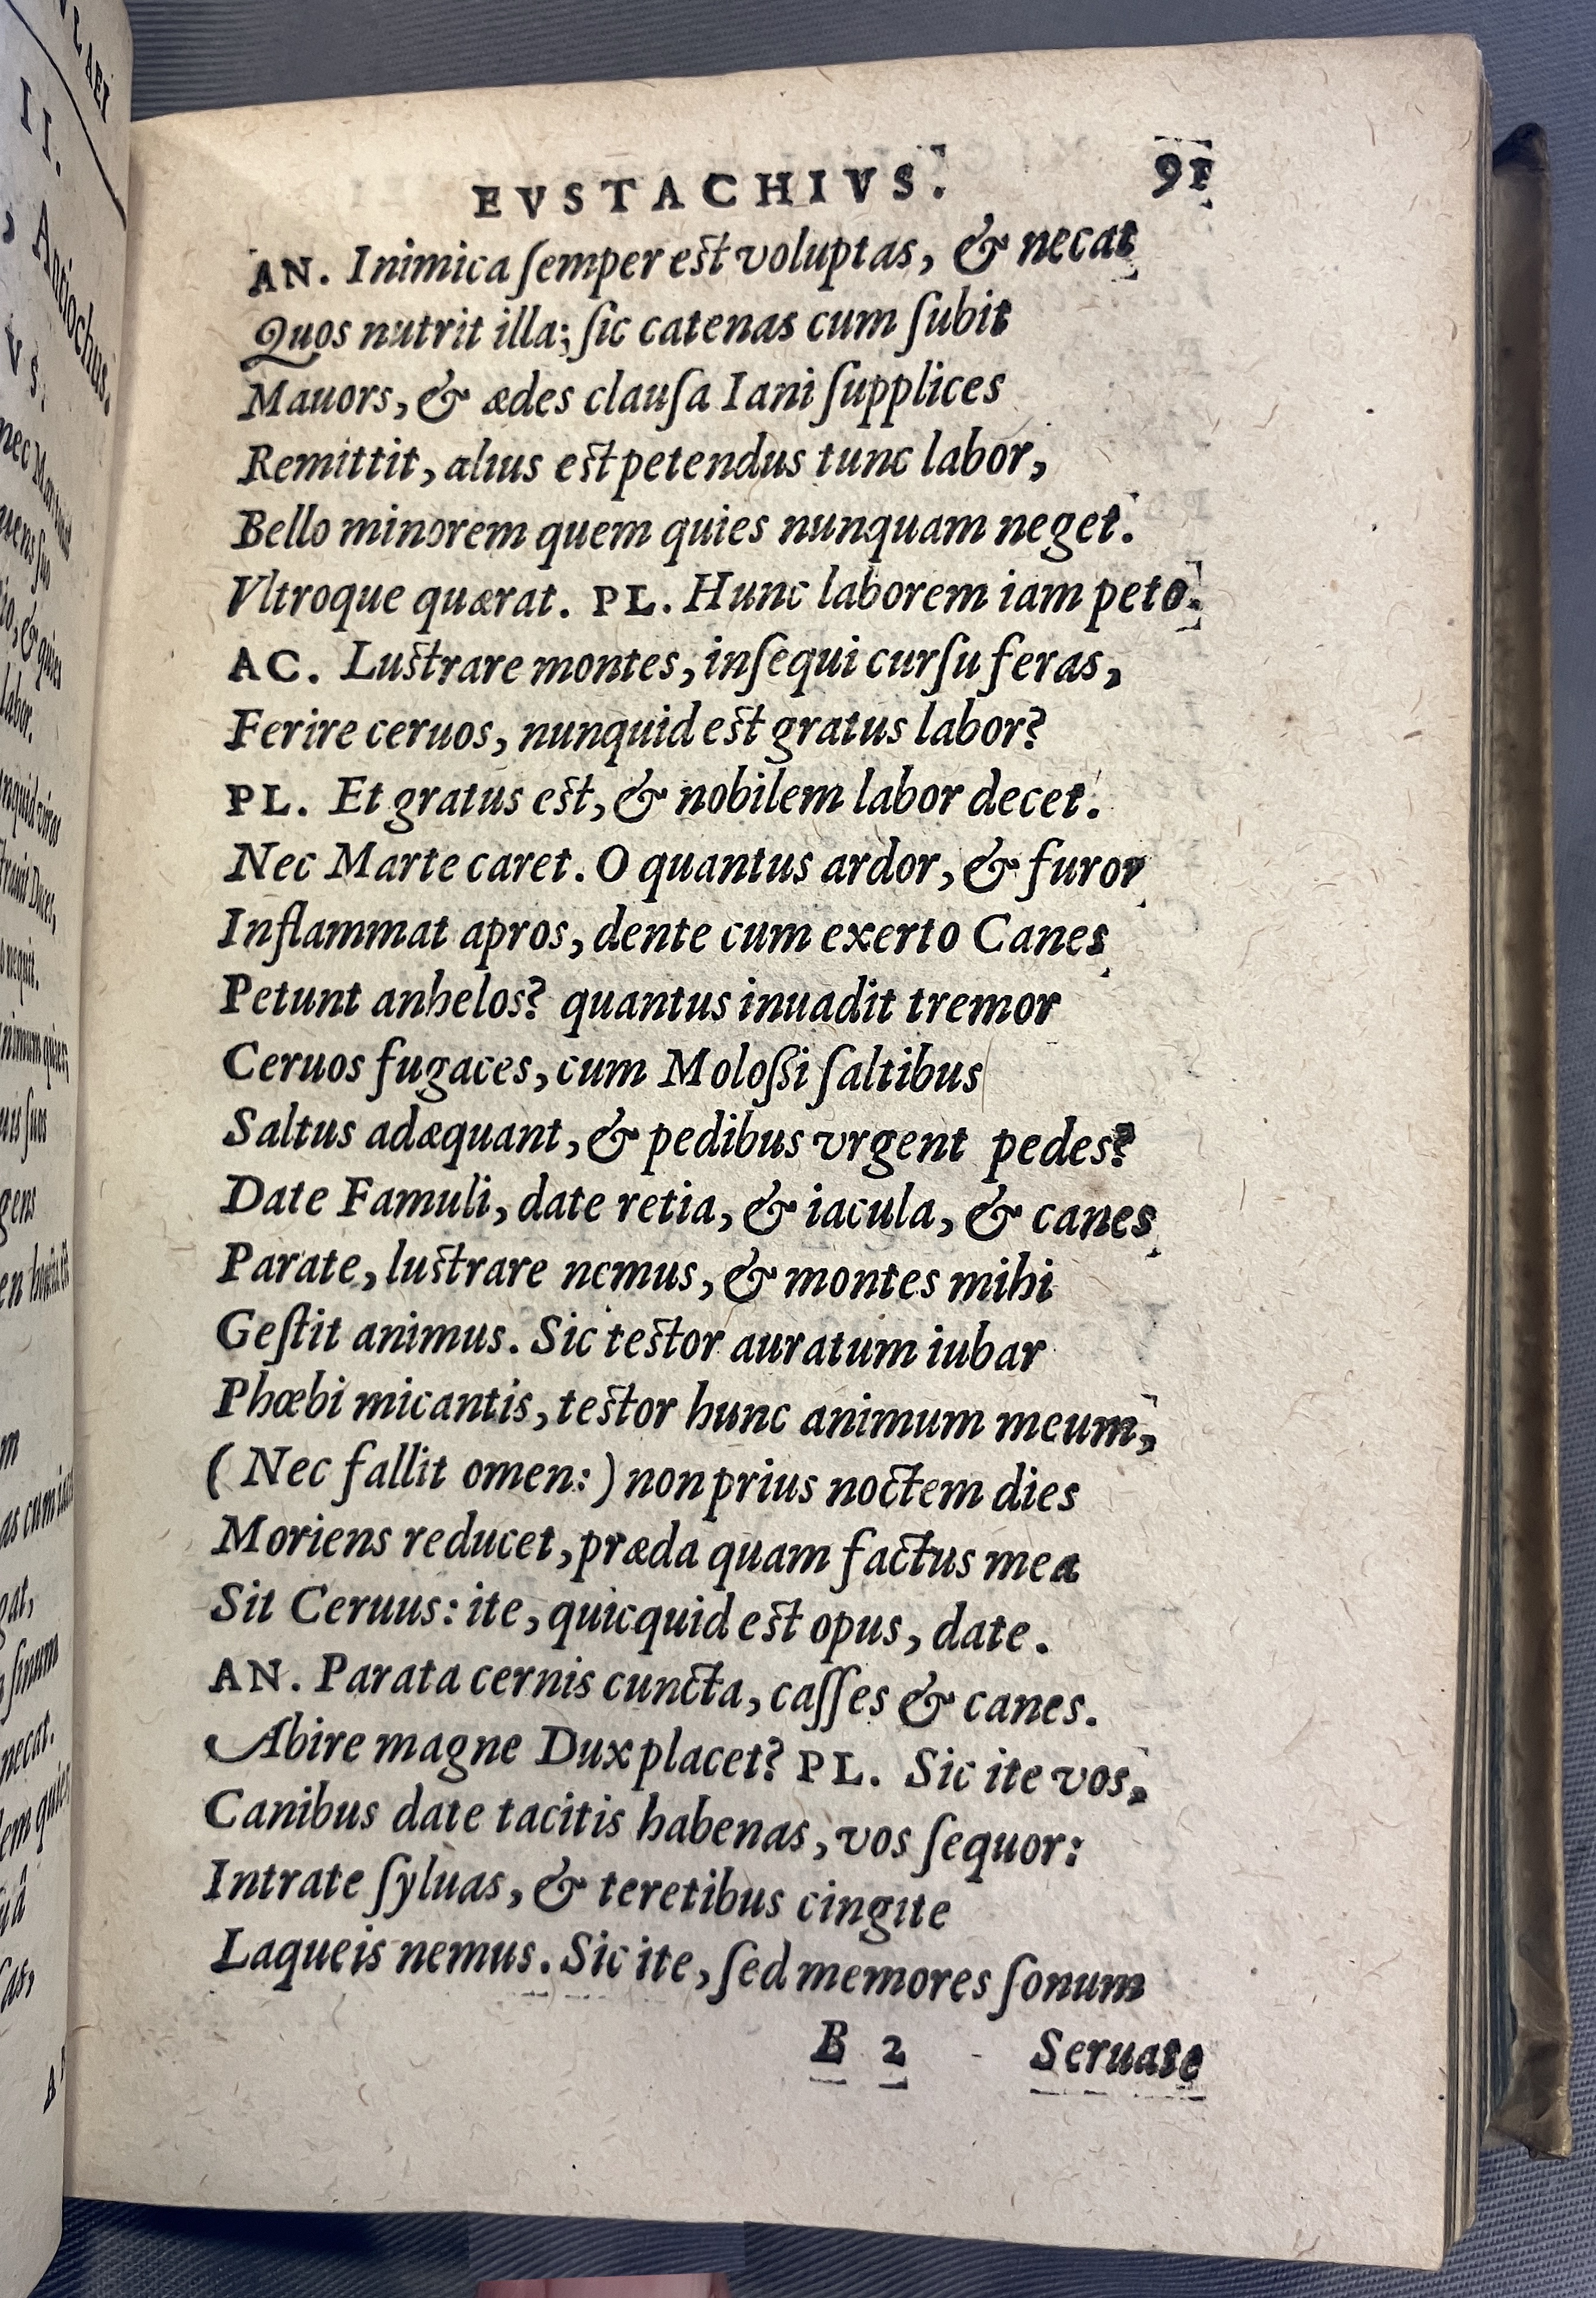 EVSTACHIVS. 91
AN. Inimica ſemper eſt voluptas, & necat
Quos nutrit illa; ſic catenas cum ſubit
Mauors, & ædes clauſa Iani ſupplices
Remittit, alius eſt petendus tunc labor,
Bello minorem quem quies nunquam neget.
Vltroque quærat. PL. Hunc laborem iam peto.
AC. Luſtrare montes, inſequi curſu feras,
Ferire ceruos, nunquid eſt gratus labor?
PL. Et gratus eſt, & nobilem labor decet.
Nec Marte caret. O quantus ardor, & furor
Inflammat apros, dente cum exerto Canes
Petunt anhelos? quantus inuadit tremor
Ceruos fugaces, cum Moloſſi ſaltibus
Saltus adæquant, & pedibus vrgent pedes?
Date Famuli, date retia, & iacula, & canes
Parate, luſtrare nemus, & montes mihi
Geſtit animus. Sic teſtor auratum iubar
Phœbi micantis, teſtor hunc animum meum,
( Nec fallit omen: ) non prius noctem dies
Moriens reducet, præda quam factus mea
Sit Ceruus: ite, quicquid eſt opus, date.
AN. Parata cernis cuncta, caſſes & canes.
Abire magne Dux placet? PL. Sic ite vos,
Canibus date tacitis habenas, vos ſequor:
Intrate ſyluas, & teretibus cingite
Laqueis nemus. Sic ite, ſed memores ſonum
B 2 Seruate